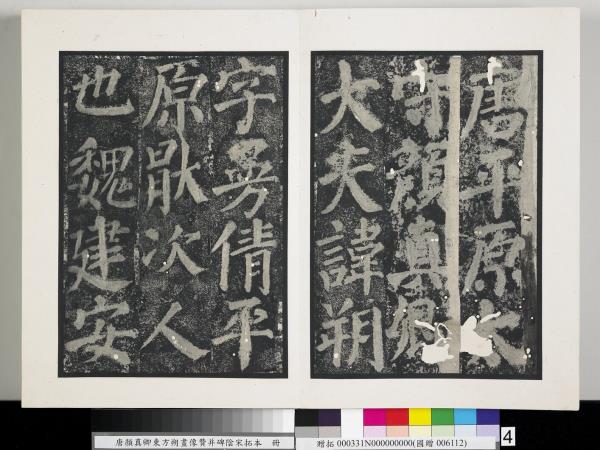 唐平原太
守顏真卿
大夫諱朔
字曼倩平
原厭次人
也魏建安
唐顏真卿東方朔畫像贊并碑陰宋拓本 冊
贈拓 000331N000000000(國贈 006112)
4